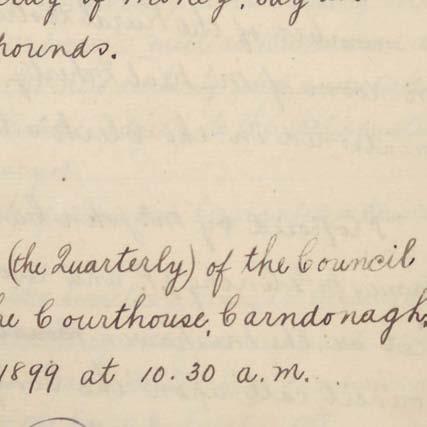 of money, say
pounds.
(the Quarterly) of the Council
he Courthouse, Carndonagh,
1899 at 10.30 a.m.